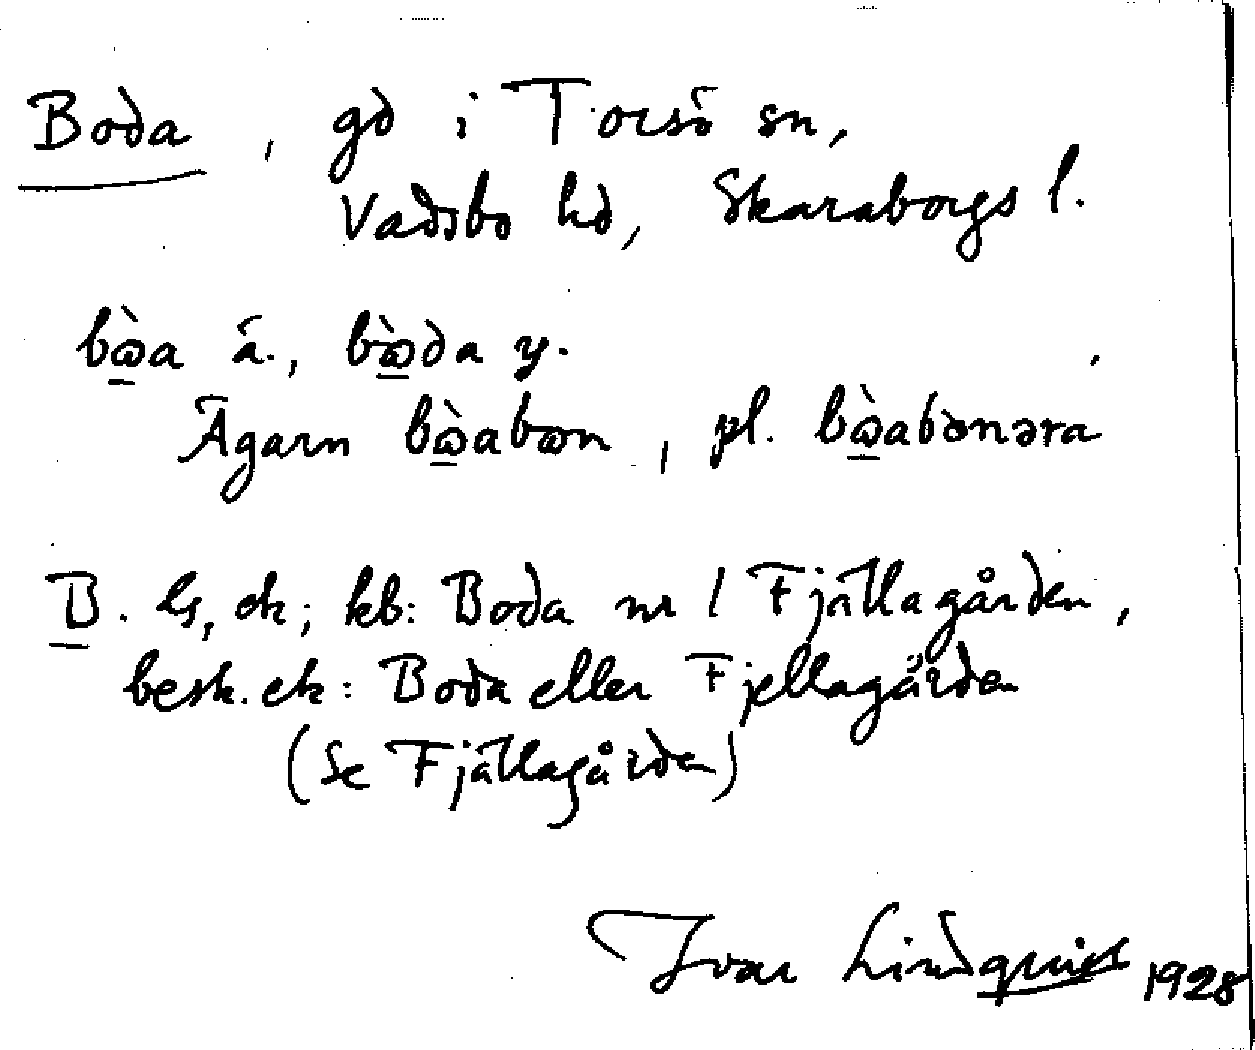 Boda, gd i Torsö sn,
Vadsbo hd, Skaraborgs l.
bɷ̀a ä., bɷ̀da y.
Ägarn bɷ̀abɷn, pl. bɷ̀abɷnəra
B. G, ek; kb: Boda nr 1 Fjällagården,
besk. ek: Boda eller Fjellagården
(Se Fjällagården)
Ivar Lindquist 1928